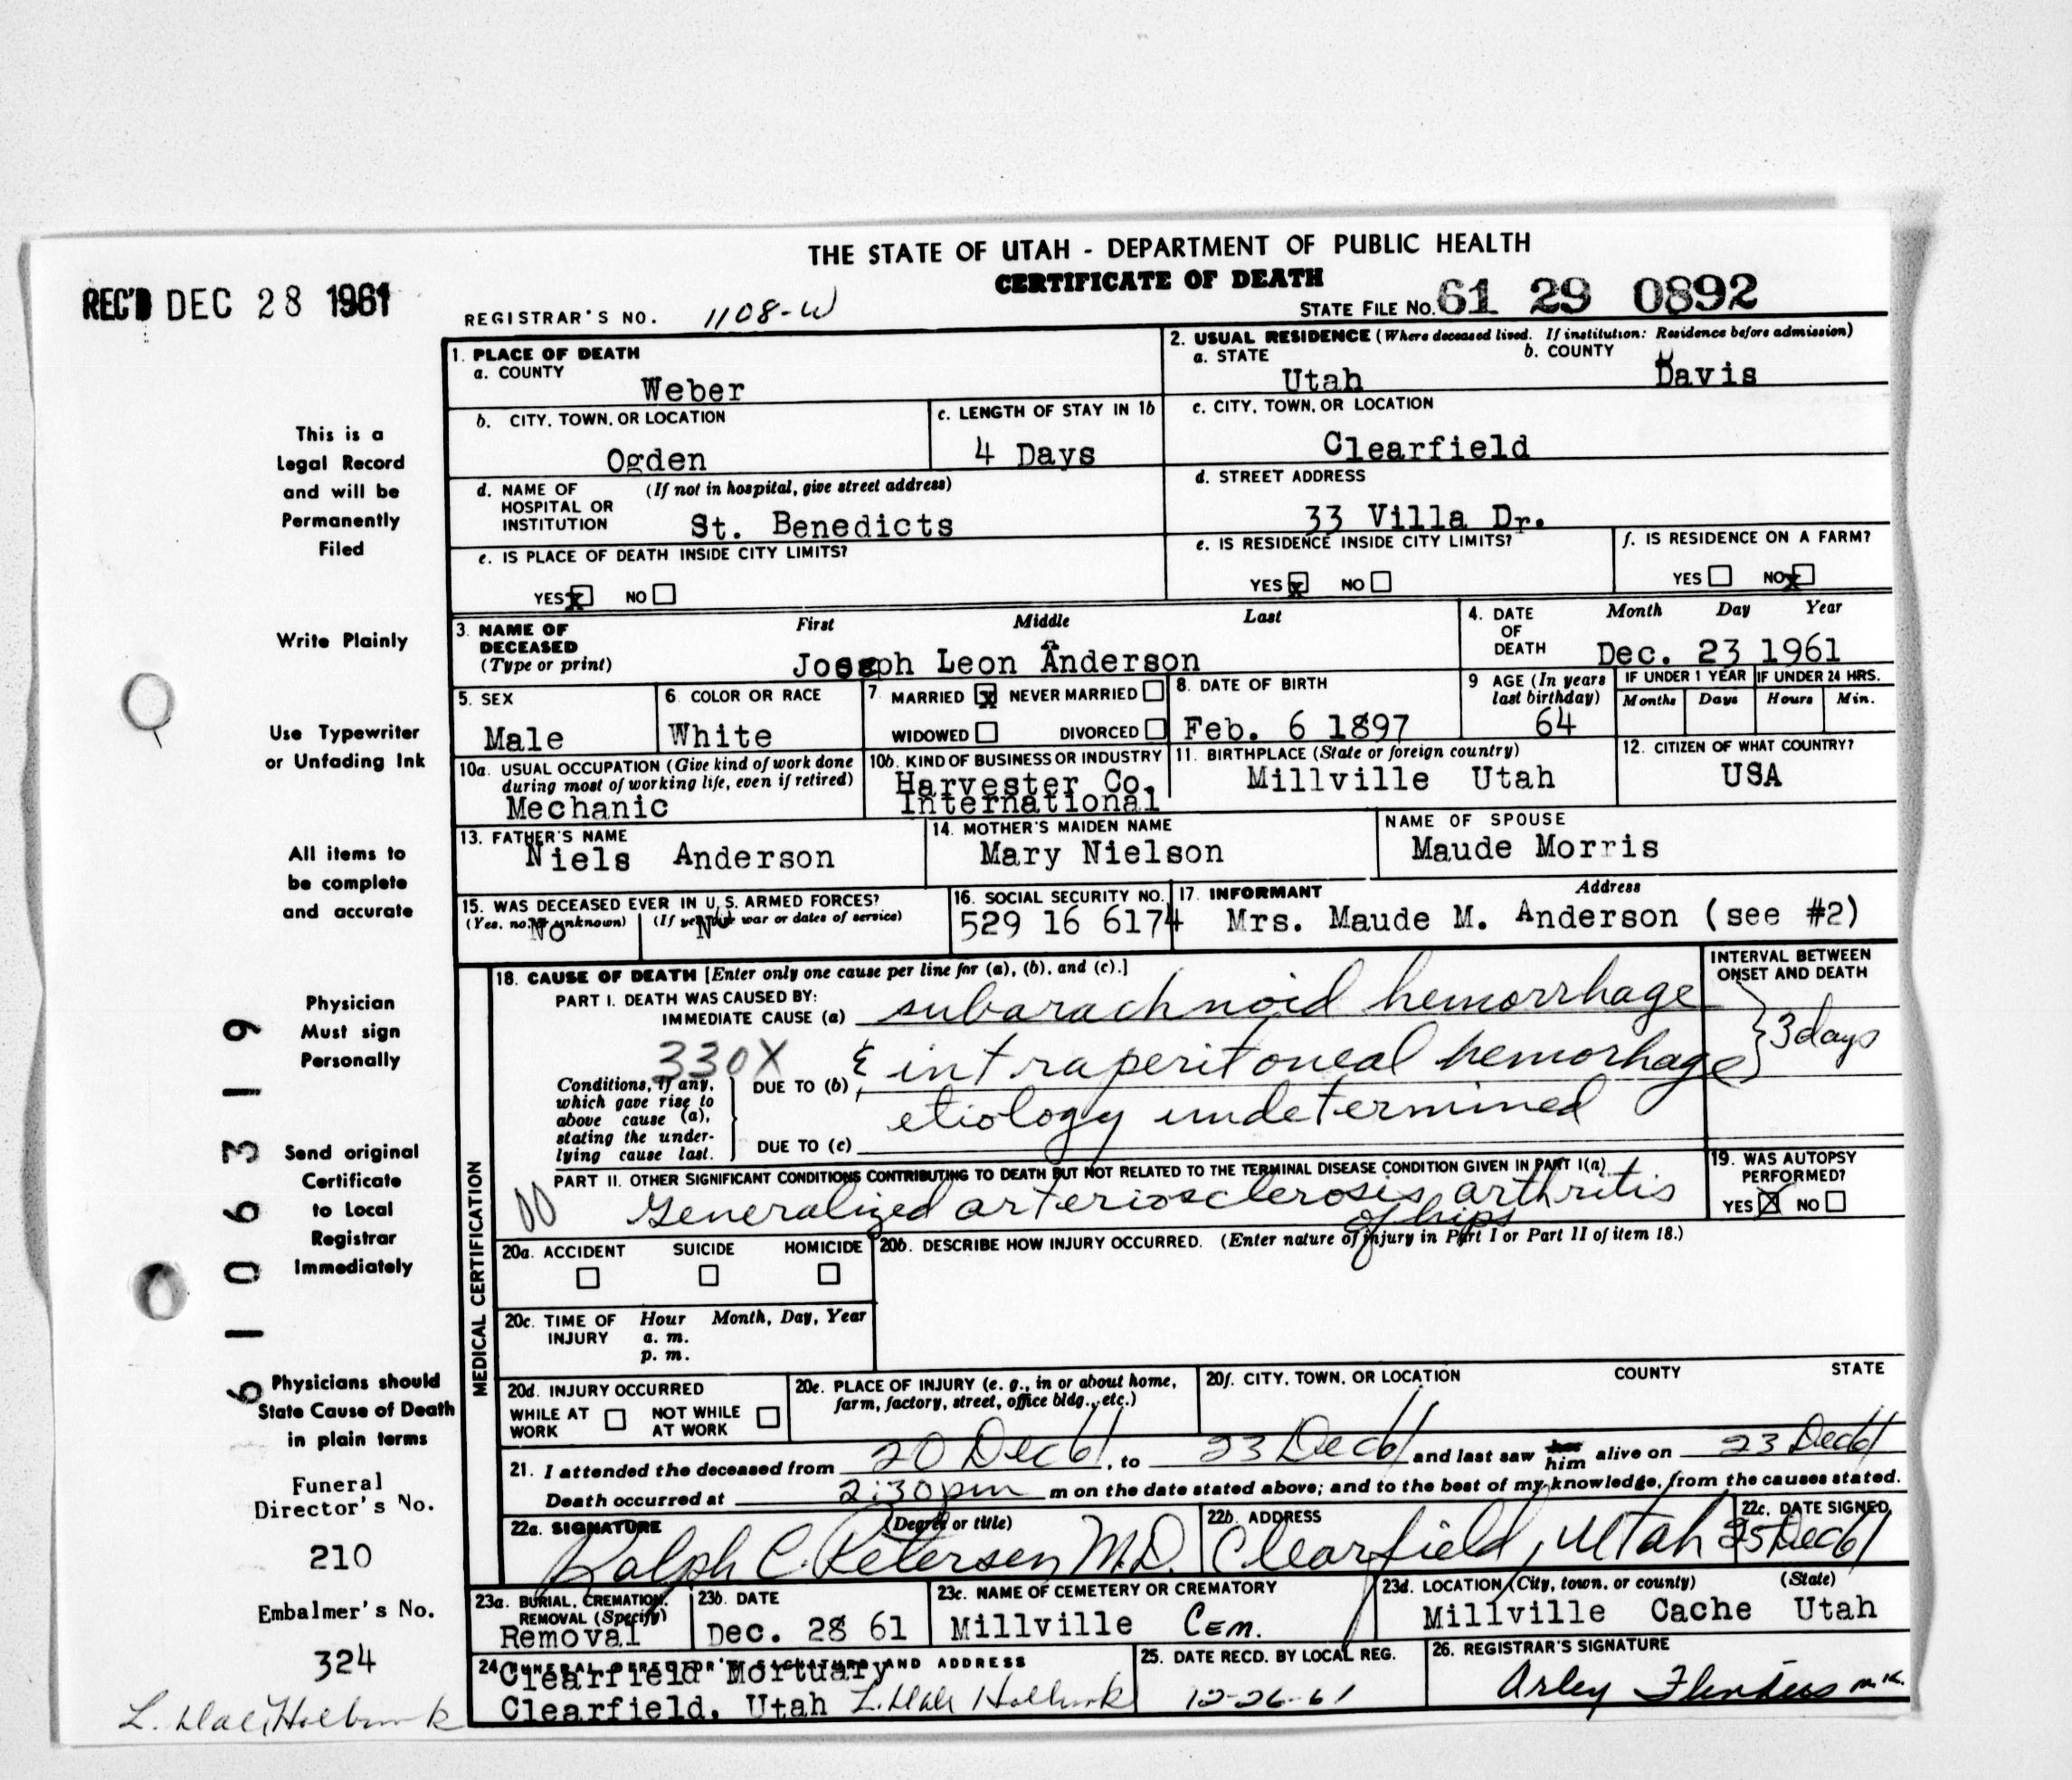 THE STATE OF UTAH - DEPARTMENT OF PUBLIC HEALTH
CERTIFICATE OF DEATH
REC'D DEC 28 1961
REGISTRAR'S NO. 1108-W
STATE FILE NO. 61 29 0892
1. PLACE OF DEATH
a. COUNTY
Weber
2. USUAL RESIDENCE (Where deceased lived. If institution: Residence before admission)
a. STATE b. COUNTY
Utah Davis
b. CITY, TOWN, OR LOCATION
Ogden
c. LENGTH OF STAY IN 1b
4 Days
c. CITY, TOWN, OR LOCATION
Clearfield
d. NAME OF HOSPITAL OR INSTITUTION (If not in hospital, give street address)
St. Benedicts
d. STREET ADDRESS
33 Villa Dr.
e. IS PLACE OF DEATH INSIDE CITY LIMITS?
YES x NO
e. IS RESIDENCE INSIDE CITY LIMITS?
YES x NO
f. IS RESIDENCE ON A FARM?
YES NO x
3. NAME OF DECEASED (Type or print)
First Middle Last
Joseph Leon Anderson
4. DATE OF DEATH
Month Day Year
Dec. 23 1961
5. SEX
Male
6. COLOR OR RACE
White
7. MARRIED x NEVER MARRIED
WIDOWED DIVORCED
8. DATE OF BIRTH
Feb. 6 1897
9 AGE (In years last birthday)
64
IF UNDER 1 YEAR
Months Days
IF UNDER 24 HRS.
Hours Min.
10a. USUAL OCCUPATION (Give kind of work done during most of working life, even if retired)
Mechanic
10b. KIND OF BUSINESS OR INDUSTRY
Harvester Co.
International
11. BIRTHPLACE (State or foreign country)
Millville Utah
12. CITIZEN OF WHAT COUNTRY?
USA
13. FATHER'S NAME
Niels Anderson
14. MOTHER'S MAIDEN NAME
Mary Nielson
NAME OF SPOUSE
Maude Morris
15. WAS DECEASED EVER IN U.S. ARMED FORCES?
(Yes, no, or unknown) (If yes, give war or dates of service)
No No
16. SOCIAL SECURITY NO.
529 16 6174
17. INFORMANT Address
Mrs. Maude M. Anderson (see #2)
MEDICAL CERTIFICATION
18. CAUSE OF DEATH [Enter only one cause per line for (a), (b), and (c).]
PART I. DEATH WAS CAUSED BY:
IMMEDIATE CAUSE (a) subarachnoid hemorrhage
330X
Conditions, if any, which gave rise to above cause (a), stating the underlying cause last.
DUE TO (b) & intraperitoneal hemorhage
etiology undetermined
DUE TO (c)
INTERVAL BETWEEN ONSET AND DEATH
3 days
PART II. OTHER SIGNIFICANT CONDITIONS CONTRIBUTING TO DEATH BUT NOT RELATED TO THE TERMINAL DISEASE CONDITION GIVEN IN PART I(a)
Generalized arteriosclerosis, arthritis
of hips
19. WAS AUTOPSY PERFORMED?
YES X NO
20a. ACCIDENT SUICIDE HOMICIDE
20b. DESCRIBE HOW INJURY OCCURRED. (Enter nature of injury in Part I or Part II of item 18.)
20c. TIME OF INJURY Hour Month, Day, Year
a. m.
p. m.
20d. INJURY OCCURRED
WHILE AT WORK NOT WHILE AT WORK
20e. PLACE OF INJURY (e. g., in or about home, farm, factory, street, office bldg., etc.)
20f. CITY, TOWN, OR LOCATION COUNTY STATE
21. I attended the deceased from 20 Dec 61, to 23 Dec 61 and last saw her him alive on 23 Dec 61
Death occurred at 2:30 pm m on the date stated above; and to the best of my knowledge, from the causes stated.
22a. SIGNATURE (Degree or title)
Ralph C. Petersen M.D.
22b. ADDRESS
Clearfield, Utah
22c. DATE SIGNED
25 Dec 61
23a. BURIAL, CREMATION, REMOVAL (Specify)
Removal
23b. DATE
Dec. 28 61
23c. NAME OF CEMETERY OR CREMATORY
Millville Cem.
23d. LOCATION (City, town, or county) (State)
Millville Cache Utah
24 FUNERAL DIRECTOR'S SIGNATURE AND ADDRESS
Clearfield Mortuary
Clearfield, Utah L. Dale Holbrook
25. DATE RECD. BY LOCAL REG.
12-26-61
26. REGISTRAR'S SIGNATURE
Arley Flinders m.k.
This is a
Legal Record
and will be
Permanently
Filed
Write Plainly
Use Typewriter
or Unfading Ink
All items to
be complete
and accurate
Physician
Must sign
Personally
Send original
Certificate
to Local
Registrar
Immediately
Physicians should
State Cause of Death
in plain terms
Funeral
Director's No.
210
Embalmer's No.
324
L. Dale Holbrook
6106319